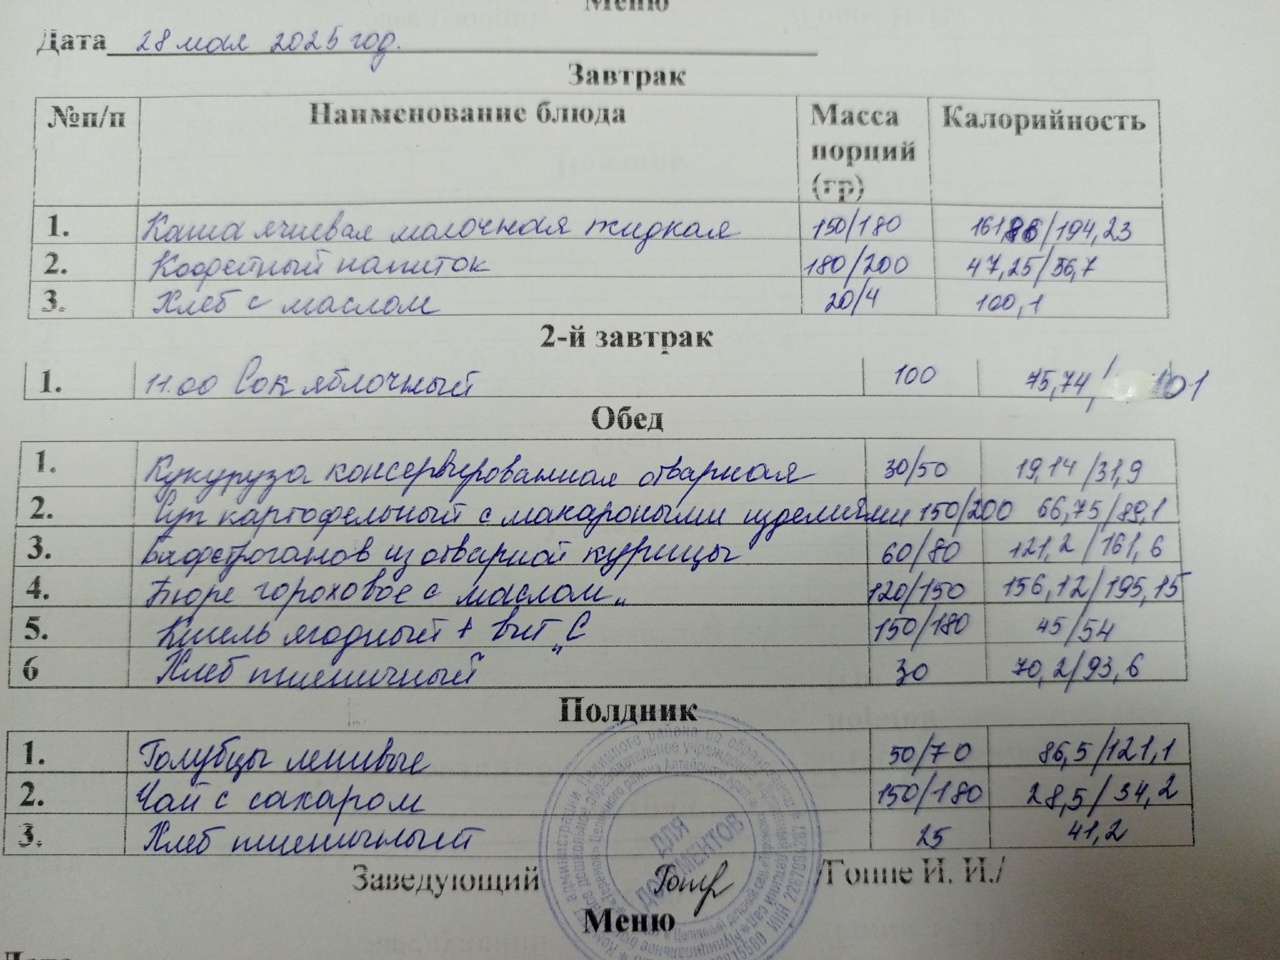 Меню
Дата 28 мая 2025 год.
Завтрак
№п/п Наименование блюда Масса порций (гр) Калорийность
1. Каша ячневая молочная жидкая 150/180 16186/194,23
2. Кофейный напиток 180/200 47,25/56,7
3. Хлеб с маслом 20/4 100,1
2-й завтрак
1. 11.00 Сок яблочный 100 75,74/101
Обед
1. Кукуруза консервированная отварная 30/50 19,14/31,9
2. Суп картофельный с макаронными изделиями 150/200 66,75/89,1
3. Бефстроганов из отварной курицы 60/80 121,2/161,6
4. Пюре гороховое с маслом 120/150 156,12/195,15
5. Кисель ягодный + вит "С 150/180 45/54
6 Хлеб пшеничный 30 70,2/93,6
Полдник
1. Голубцы ленивые 50/70 86,5/121,1
2. Чай с сахаром 150/180 28,5/34,2
3. Хлеб пшеничный 25 41,2
Заведующий /Гонне И. И./
ДЛЯ ДОКУМЕНТОВ
Меню
Дата